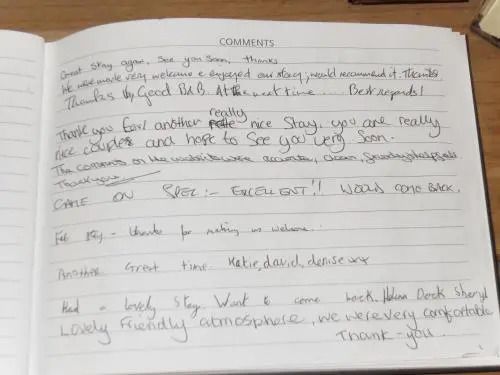 COMMENTS
Great Stay again, See you Soon, thanks
We were made very welcome & enjoyed our stay, would recommend it. Thanks
Thanks Good B&B. At next time..... Best regards!
really
Thank you for another nice Stay, you are really
nice couple and hope to See you very Soon.
The comments on the website were accurate, clean,
Thank you
CAME ON SPEC :- EXCELLENT!! WOULD COME BACK.
Fab stay - thanks for making us welcome..
Another Great time. Katie, david, denise xx
Had a lovely Stay. Want to come back. Helena Derek Sheryl
Lovely Friendly atmosphere, we were very comfortable
Thank-you.